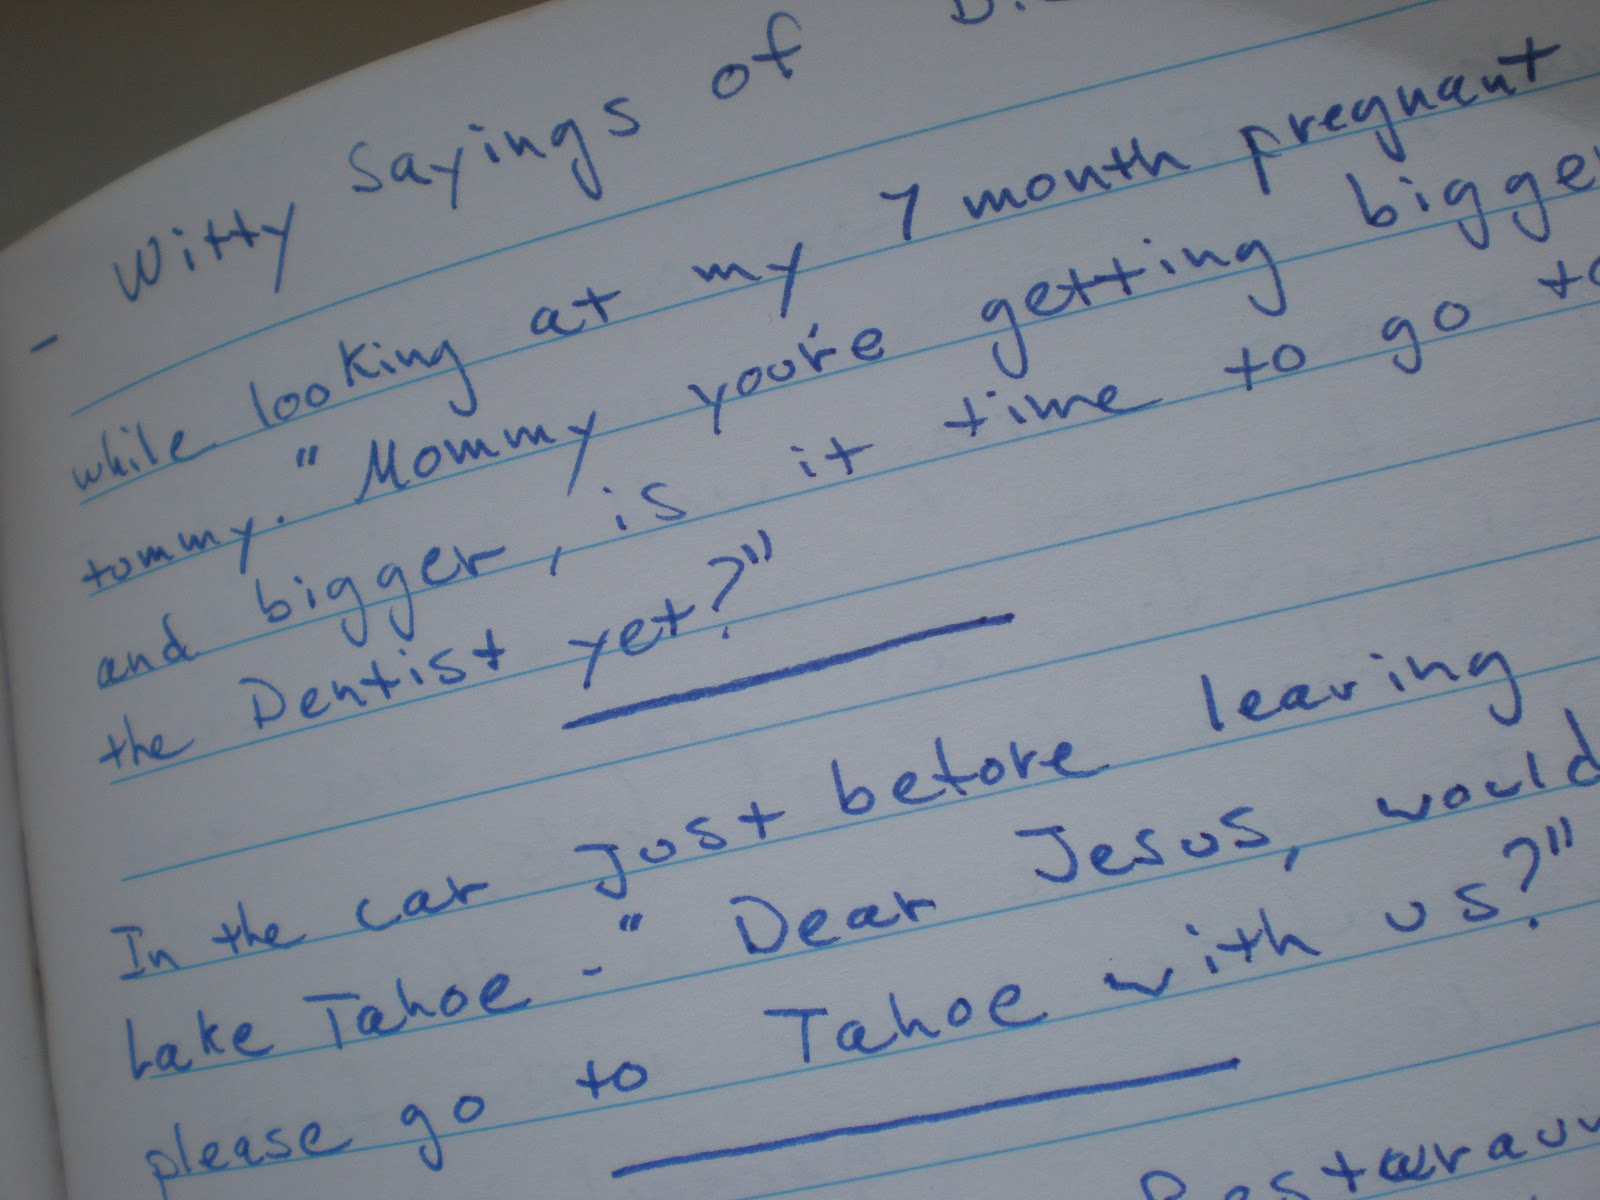 - Witty Sayings of
while looking at my 7 month pregnant
tommy. "Mommy you're getting bigger
and bigger, is it time to go to
the Dentist yet?"
In the car just before leaving
Lake Tahoe - "Dear Jesus, would
please go to Tahoe with us?"